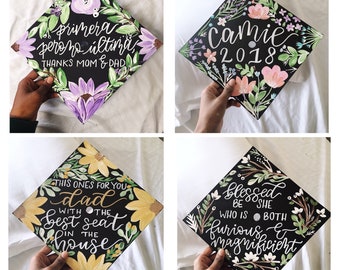 primera
pero no última
THANKS MOM & DAD
Camie
2018
THIS ONES FOR YOU
dad
WITH THE
best seat
IN THE
house
blessed
BE SHE
WHO IS BOTH
furious &
magnificent